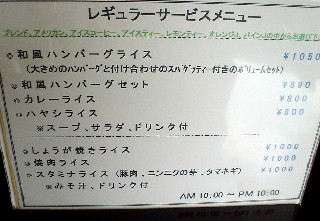 レギュラーサービスメニュー
ブレンド、アメリカン、アイスコーヒー、アイスティー、レモンティー、オレンジJ、パインJの中からお選び下
◇和風ハンバーグライス ¥1050
(大きめのハンバーグと付け合わせのスパゲッティー付きのボリュームセット)
◇和風ハンバーグセット ¥890
◇カレーライス ¥800
◇ハヤシライス ¥800
※スープ、サラダ、ドリンク付
◇しょうが焼きライス ¥1000
◇焼肉ライス ¥1000
◇スタミナライス (豚肉、ニンニクの芽、タマネギ) ¥1000
※みそ汁、ドリンク付
AM 10:00 ~ PM 10:00